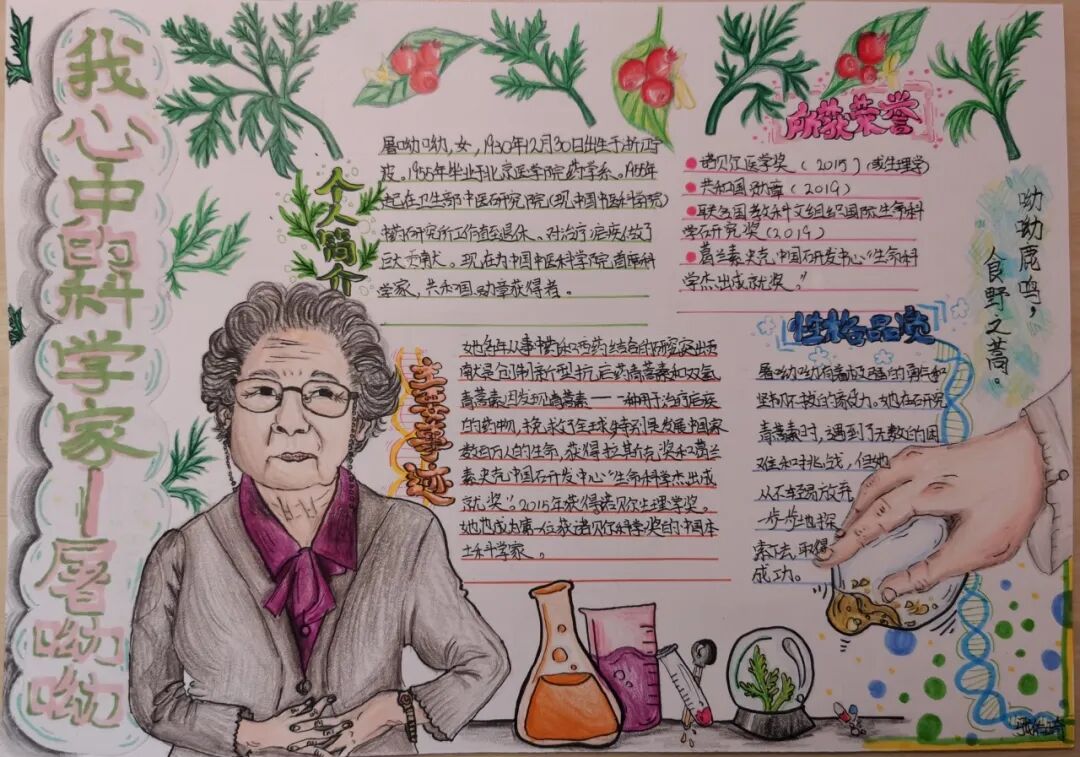 我心中的科学家—屠呦呦
个人简介
屠呦呦,女,1930年12月30日出生于浙江宁
波。1955年毕业于北京医学院药学系。1955年
起在卫生部中医研究院(现中国中医科学院)
中药研究所工作直至退休、对治疗疟疾做了
巨大贡献。现在为中国中医科学院首席科
学家,共和国勋章获得者。
所获荣誉
诺贝尔医学奖(2015)(或生理学)
共和国勋章(2019)
联合国教科文组织国际生命科
学研究奖(2019)
葛兰素史克中国研发中心“生命科
学杰出成就奖”
呦呦鹿鸣,
食野之蒿。
主要事迹
她多年从事中药和西药结合的研究突出贡
献是创制新型抗疟药青蒿素和双氢
青蒿素因发现青蒿素——一种用于治疗疟疾
的药物,挽救了全球特别是发展中国家
数百万人的生命,获得拉斯克奖和葛兰
素史克中国研发中心“生命科学杰出成
就奖”。2015年获得诺贝尔生理学奖。
她也成为第一位获诺贝尔科学奖的中国本
土科学家。
性格品质
屠呦呦有着顽强的
坚韧不拔的意志力。她在研究
青蒿素时,遇到了无数的困
难和挑战,但她
从不轻易放弃
一步步地探
索下去,取得
成功。